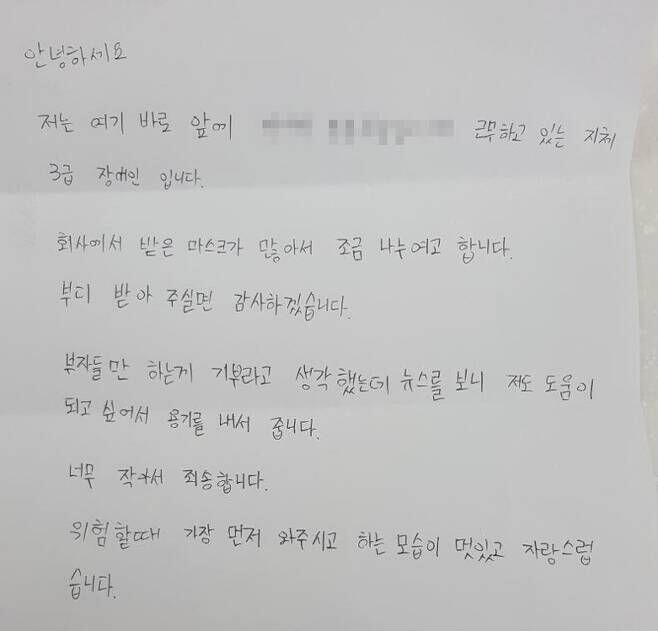 안녕하세요
저는 여기 바로 앞에 근무하고 있는 지체
3급 장애인 입니다.
회사에서 받은 마스크가 많아서 조금 나누여고 합니다.
부디 받아 주실면 감사하겠습니다.
부자들만 하는게 기부라고 생각했는데 뉴스를 보니 저도 도움이
되고 싶어서 용기를 내서 줍니다.
너무 작아서 죄송합니다.
위험할때 가장 먼저 와주시고 하는 모습이 멋있고 자랑스럽
습니다.